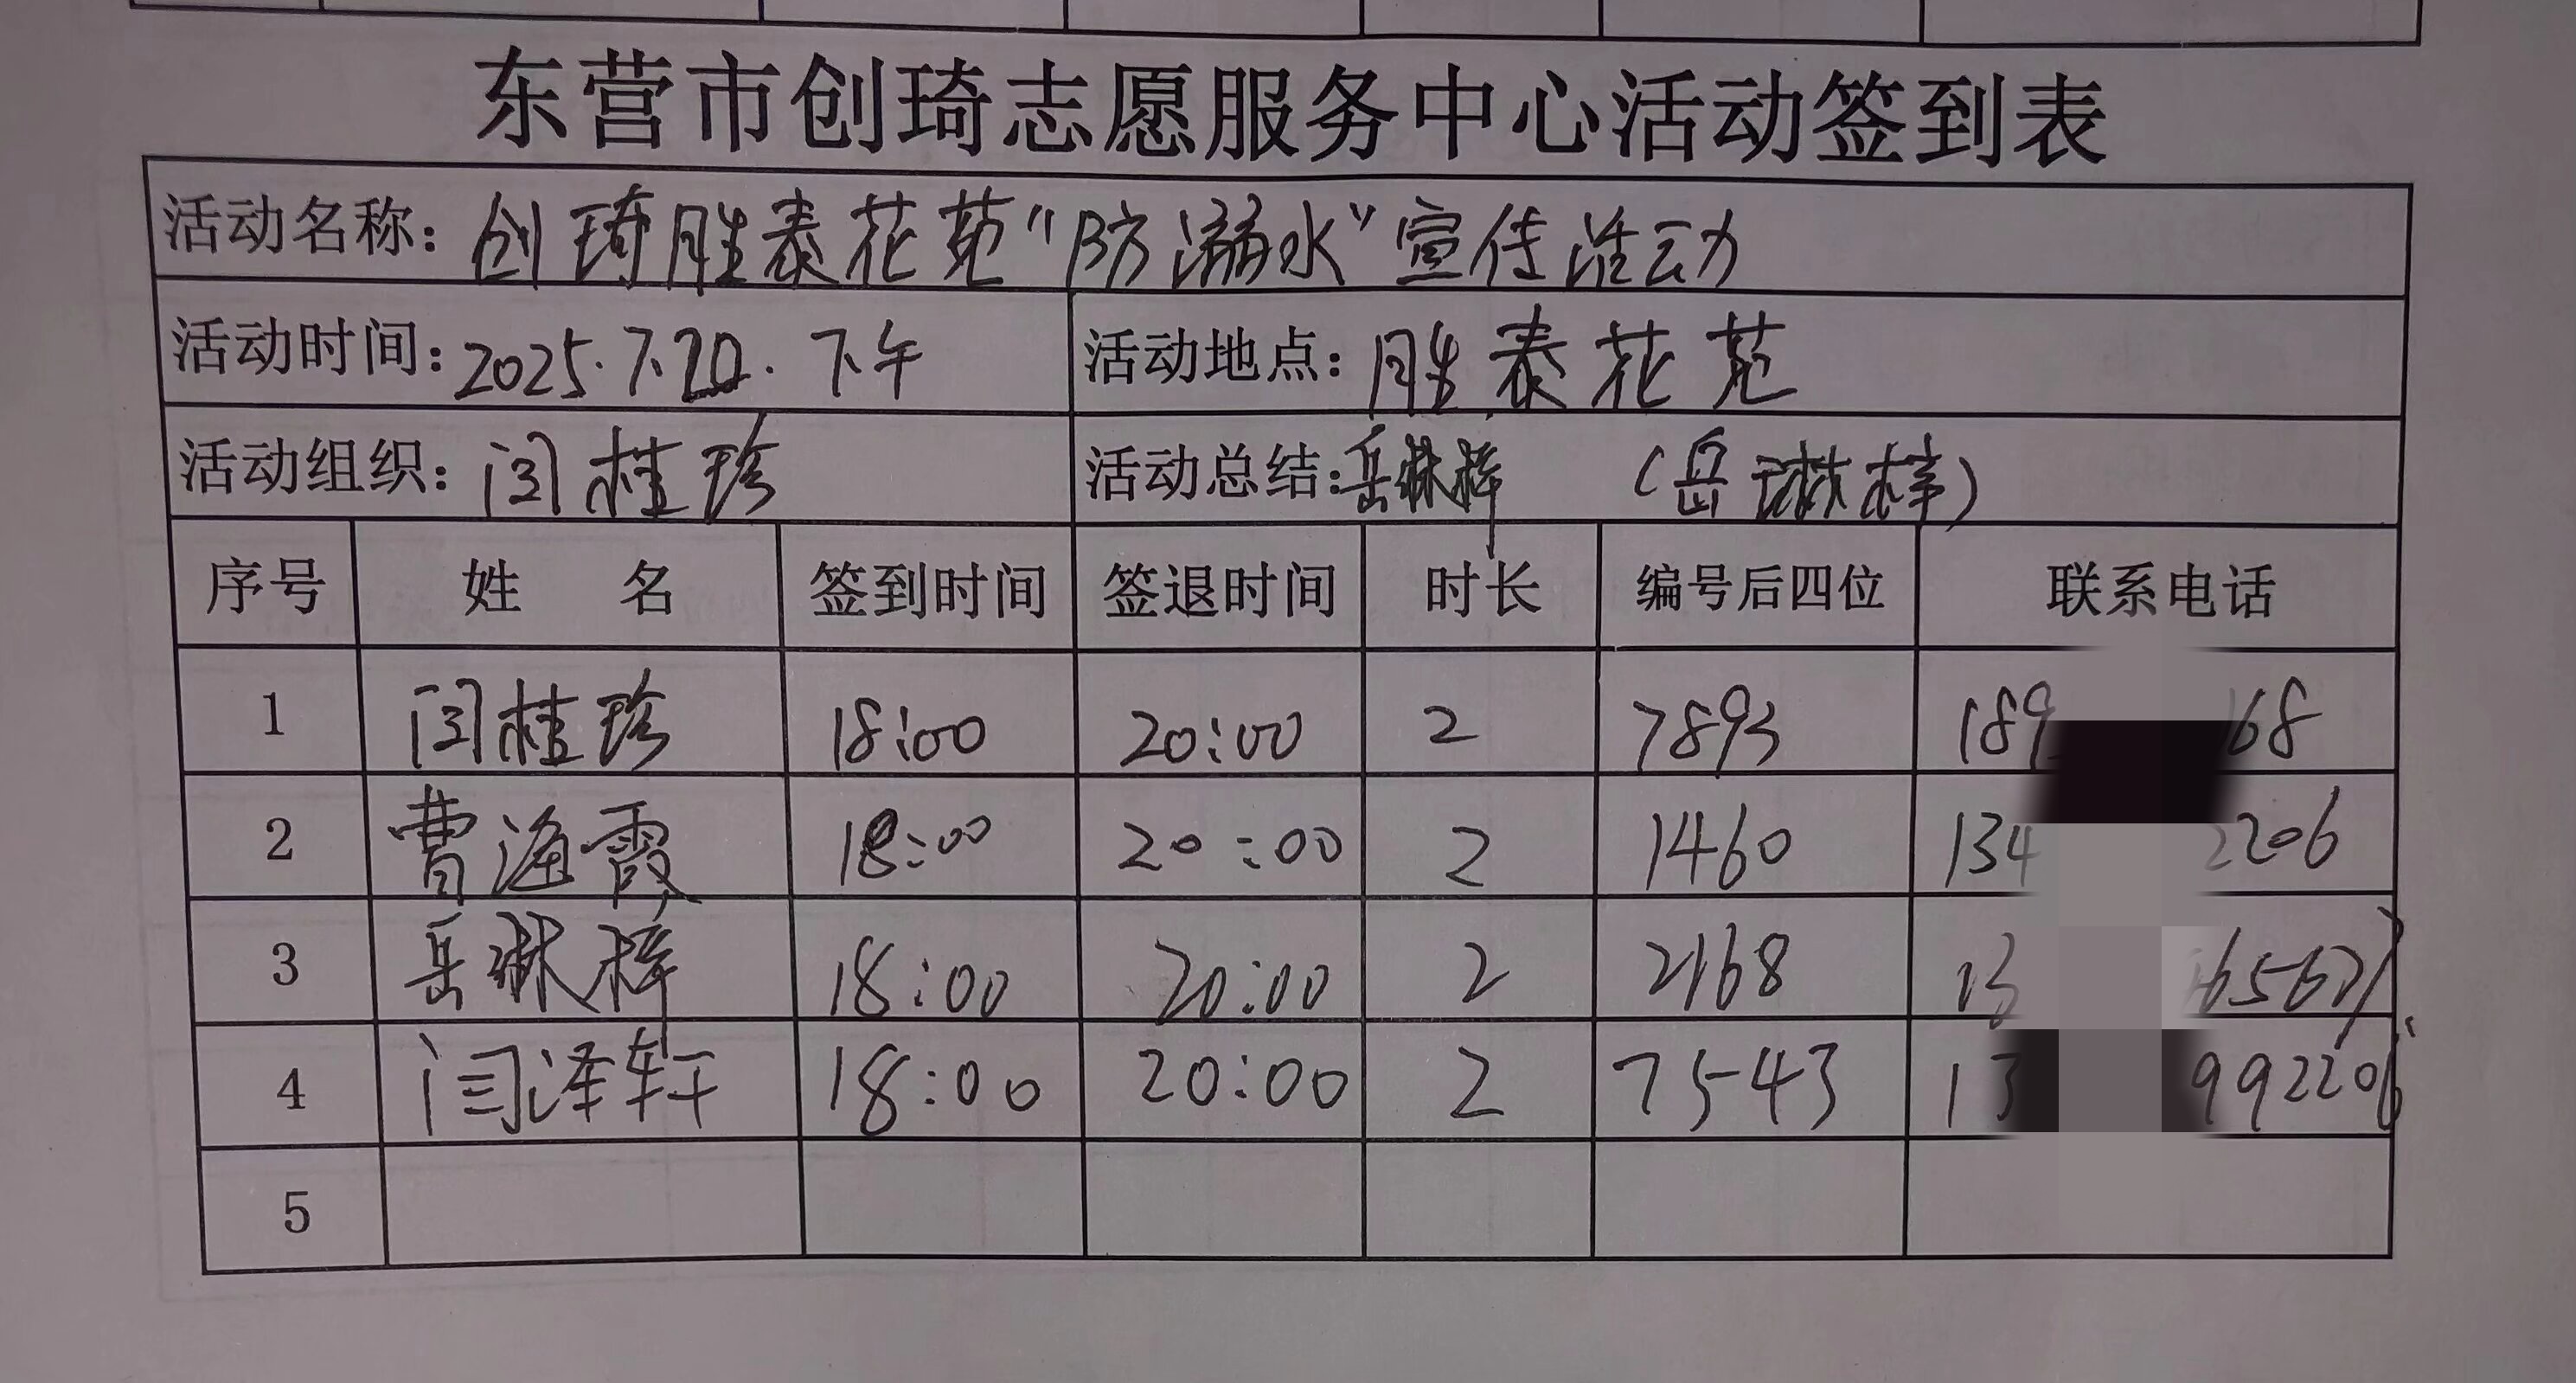 东营市创琦志愿服务中心活动签到表
活动名称：创琦胜泰花苑“防溺水”宣传活动
活动时间：2025.7.20.下午 活动地点：胜泰花苑
活动组织：闫桂珍 活动总结：岳琳梓 （岳琳梓）
序号 姓名 签到时间 签退时间 时长 编号后四位 联系电话
1 闫桂珍 18:00 20:00 2 7893 189 168
2 曹海霞 18:00 20:00 2 1460 134 2206
3 岳琳梓 18:00 20:00 2 2168 13
4 闫泽轩 18:00 20:00 2 7543 13 992206
5